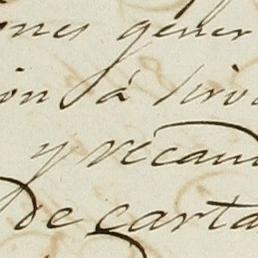 ones gener
ión á Pirv
y recau
de carta